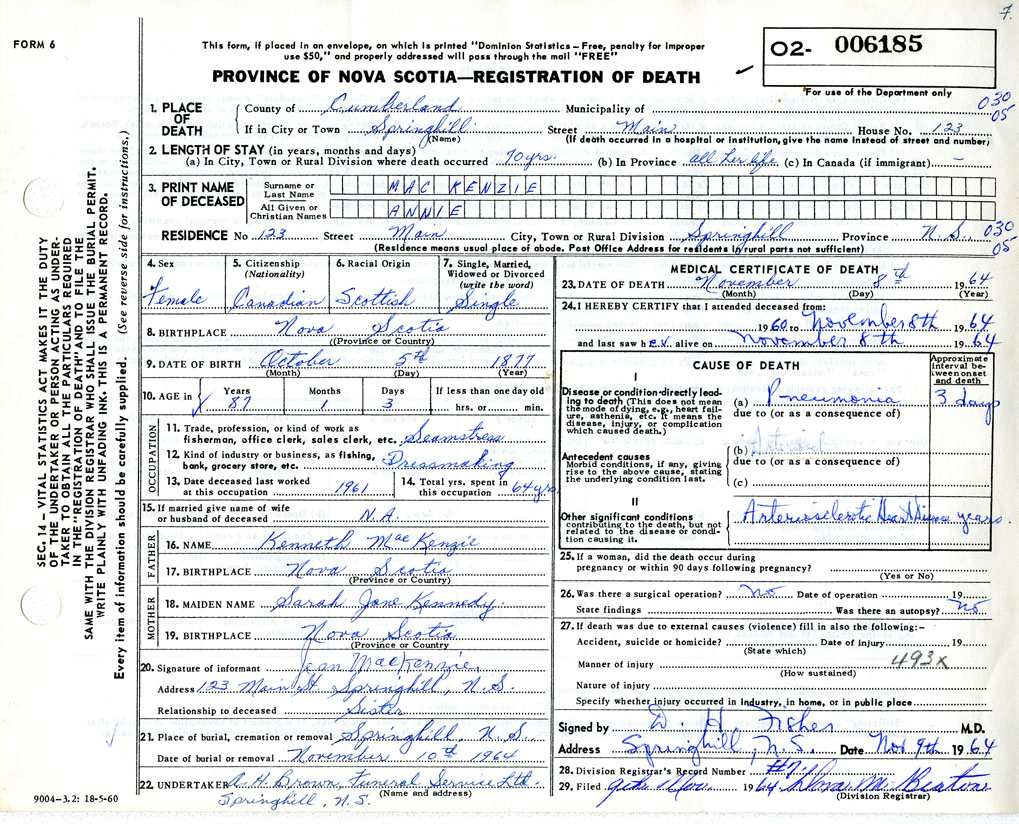 7.
FORM 6
This form, if placed in an envelope, on which is printed "Dominion Statistics – Free, penalty for improper
use $50," and properly addressed will pass through the mail "FREE"
O2- 006185
PROVINCE OF NOVA SCOTIA—REGISTRATION OF DEATH
For use of the Department only
SEC. 14 – VITAL STATISTICS ACT MAKES IT THE DUTY
OF THE UNDERTAKER OR PERSON ACTING AS UNDER-
TAKER TO OBTAIN ALL THE PARTICULARS REQUIRED
IN THE "REGISTRATION OF DEATH" AND TO FILE THE
SAME WITH THE DIVISION REGISTRAR WHO SHALL ISSUE THE BURIAL PERMIT.
WRITE PLAINLY WITH UNFADING INK. THIS IS A PERMANENT RECORD.
Every item of information should be carefully supplied. (See reverse side for instructions.)
1. PLACE OF DEATH
County of Cumberland Municipality of 030
05
If in City or Town Springhill Street Main House No. 123
(Name) (If death occurred in a hospital or institution, give the name instead of street and number)
2. LENGTH OF STAY (in years, months and days)
(a) In City, Town or Rural Division where death occurred 70 yrs. (b) In Province all her life (c) In Canada (if immigrant) –
3. PRINT NAME OF DECEASED
Surname or Last Name MAC KENZIE
All Given or Christian Names ANNIE
RESIDENCE No 123 Street Main City, Town or Rural Division Springhill Province N.S. 030
05
(Residence means usual place of abode. Post Office Address for residents in rural parts not sufficient)
4. Sex
Female
5. Citizenship
(Nationality)
Canadian
6. Racial Origin
Scottish
7. Single, Married,
Widowed or Divorced
(write the word)
Single
8. BIRTHPLACE Nova Scotia
(Province or Country)
9. DATE OF BIRTH October 5th 1877
(Month) (Day) (Year)
10. AGE in Years Months Days If less than one day old
87 1 3 hrs. or min.
OCCUPATION
11. Trade, profession, or kind of work as
fisherman, office clerk, sales clerk, etc. Seamstress
12. Kind of industry or business, as fishing,
bank, grocery store, etc. Dressmaking
13. Date deceased last worked
at this occupation 1961
14. Total yrs. spent in
this occupation 64 yrs
15. If married give name of wife
or husband of deceased N.A.
FATHER
16. NAME Kenneth MacKenzie
17. BIRTHPLACE Nova Scotia
(Province or Country)
MOTHER
18. MAIDEN NAME Sarah Jane Kennedy
19. BIRTHPLACE Nova Scotia
(Province or Country)
20. Signature of informant Jean MacKenzie
Address 123 Main St Springhill, N.S.
Relationship to deceased Sister
21. Place of burial, cremation or removal Springhill, N.S.
Date of burial or removal November 10th 1964
22. UNDERTAKER A.H. Brown, Funeral Service Ltd.
(Name and address)
Springhill, N.S.
9004-3.2: 18-5-60
MEDICAL CERTIFICATE OF DEATH
23. DATE OF DEATH November 8th 1964
(Month) (Day) (Year)
24. I HEREBY CERTIFY that I attended deceased from:
1960 to November 8th 1964
and last saw her alive on November 8th 1964
CAUSE OF DEATH
Approximate
interval be-
tween onset
and death
I
Disease or condition directly lead-
ing to death (This does not mean
the mode of dying, e.g., heart fail-
ure, asthenia, etc. It means the
disease, injury, or complication
which caused death.)
(a) Pneumonia 3 days
due to (or as a consequence of)
Antecedent causes
Morbid conditions, if any, giving
rise to the above cause, stating
the underlying condition last.
(b)
due to (or as a consequence of)
(c)
II
Other significant conditions
contributing to the death, but not
related to the disease or condi-
tion causing it.
Arteriosclerotic Heart Disease years.
25. If a woman, did the death occur during
pregnancy or within 90 days following pregnancy?
(Yes or No)
26. Was there a surgical operation? No Date of operation 19
State findings Was there an autopsy? No
27. If death was due to external causes (violence) fill in also the following:–
Accident, suicide or homicide? Date of injury 19
(State which)
493x
Manner of injury
(How sustained)
Nature of injury
Specify whether injury occurred in industry, in home, or in public place
Signed by D. H. Fisher M.D.
Address Springhill, N.S. Date Nov 9th 1964
28. Division Registrar's Record Number
29. Filed Nov. 1964
(Division Registrar)